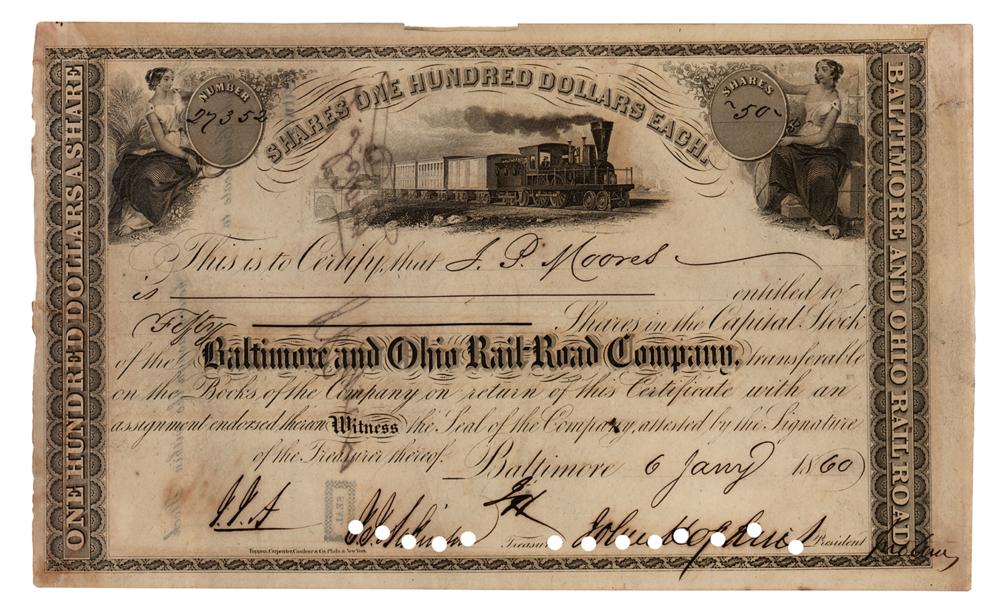 SHARES ONE HUNDRED DOLLARS EACH.
NUMBER
27352
SHARES
50
ONE HUNDRED DOLLARS A SHARE
BALTIMORE AND OHIO RAIL ROAD
This is to Certify, that J. P. Moores
is entitled to
Fifty Shares in the Capital Stock
of the Baltimore and Ohio Rail-Road Company, transferable
on the Books of the Company on return of this Certificate with an
assignment endorsed thereon Witness the Seal of the Company, attested by the Signature
of the Treasurer thereof. Baltimore 6 Jany 1860
J.J.A
Treasurer
John W President
Toppan, Carpenter, Casilear & Co. Phila. & New York.
SEAL